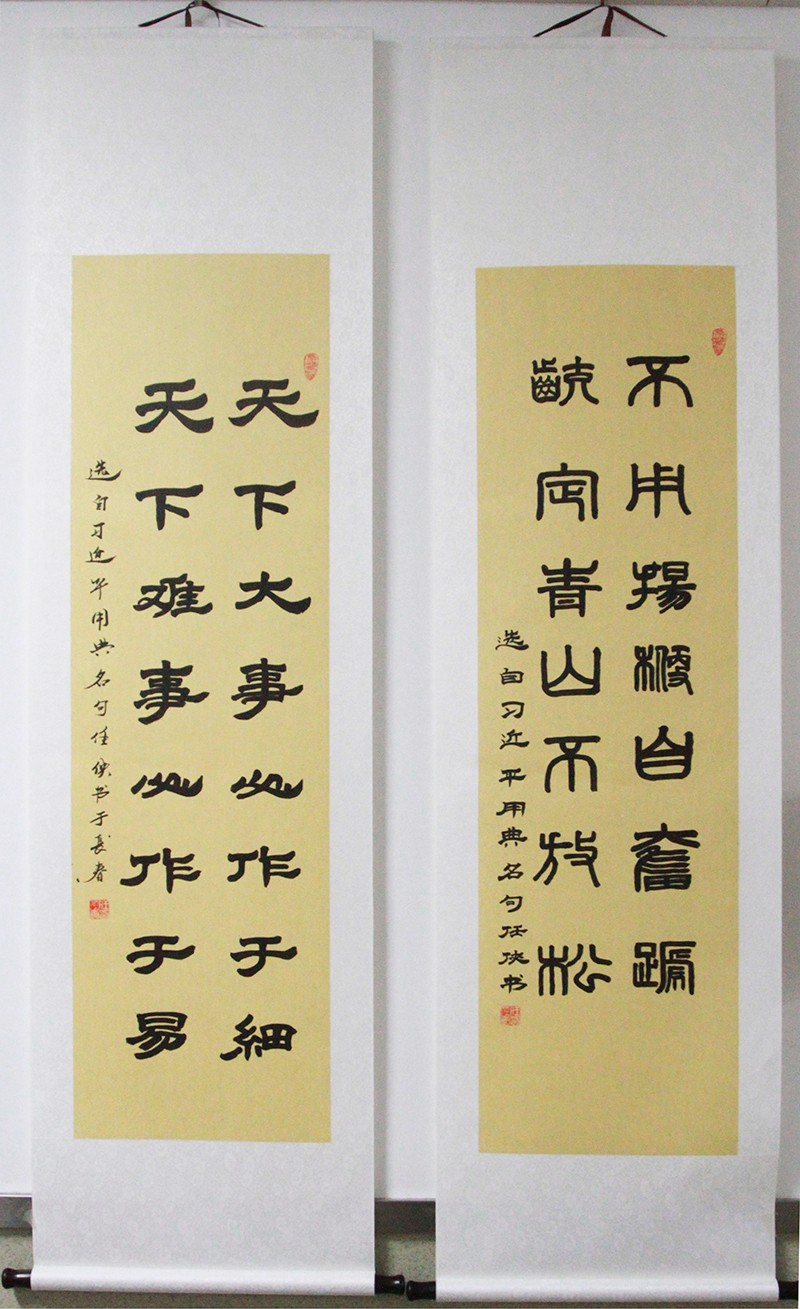 不用揚鞭自奮蹏
齩定青山不放松
选自习近平用典名句任侠书
天下大事必作于細
天下难事必作于易
选自习近平用典名句任侠书于長春